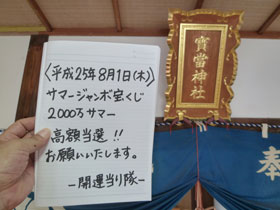 〈平成25年8月1日(木)〉
サマージャンボ宝くじ
2000万サマー
高額当選!!
お願いいたします。
ー開運当り隊ー
寳當神社
奉